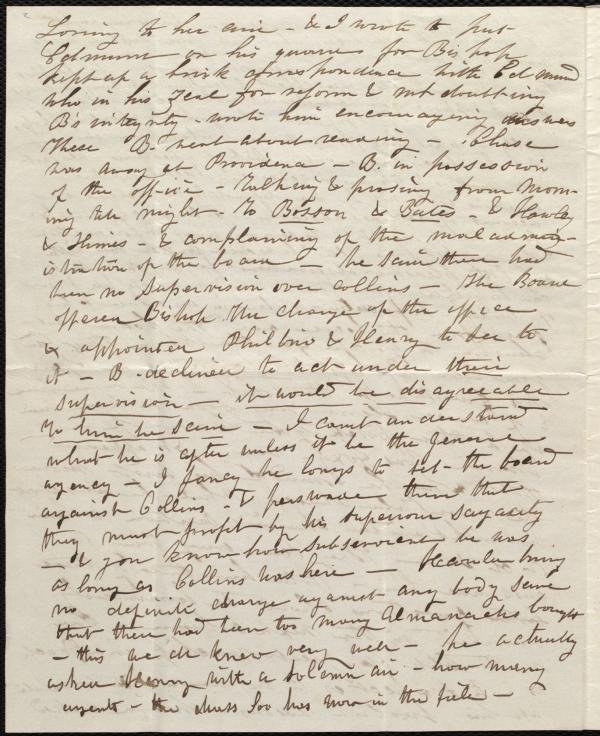 Loring to her aid - & I wrote to put
Edmund on his guard for Bishop
kept up a brisk correspondence with Edmund
who in his zeal for reform & not doubting
B's integrity - wrote him encouraging answers
These B. went about reading - Chase
was away at Providence - B. in possession
of the office - talking & prosing from morn-
ing till night - to Bosson & Bates - & Hawley
& Himes - & complaining of the maladmin-
istration of the board - he said there had
been no supervision over Collins - The Board
offered Bishop the charge of the office
& appointed Philbrick & Henry to see to
it - B. declined to act under their
supervision - it would be disagreeable
to him he said - I cant understand
what he is after unless it be the general
agency - I fancy he longs to set the board
against Collins - & persuade them that
they must profit by his superiour sagacity
- & you know how subservient he was
as long as Collins was here - He could bring
no definite charge against any body save
that there had been too many Almanacks bought
- this we all knew very well - he actually
asked Henry with a solemn air - how many
agents - the Mass Soc has now in the field -